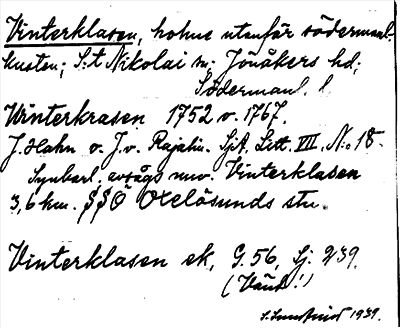 Vinterklasen, holme utanför södermanl.
kusten; S:t Nikolai sn; Jönåkers hd;
Södermanl. l.
Winterkrasen 1752 v. 1767.
J. Hahn o. J. v. Rajalin. SjA. Litt. VIII. No 18.
Synbarl. avsågs nuv. Vinterklasen
3,6 km. SSO Oxelösunds stn.
Vinterklasen ek, G. 56, Sj. 239.
(Vänt!)
1939.